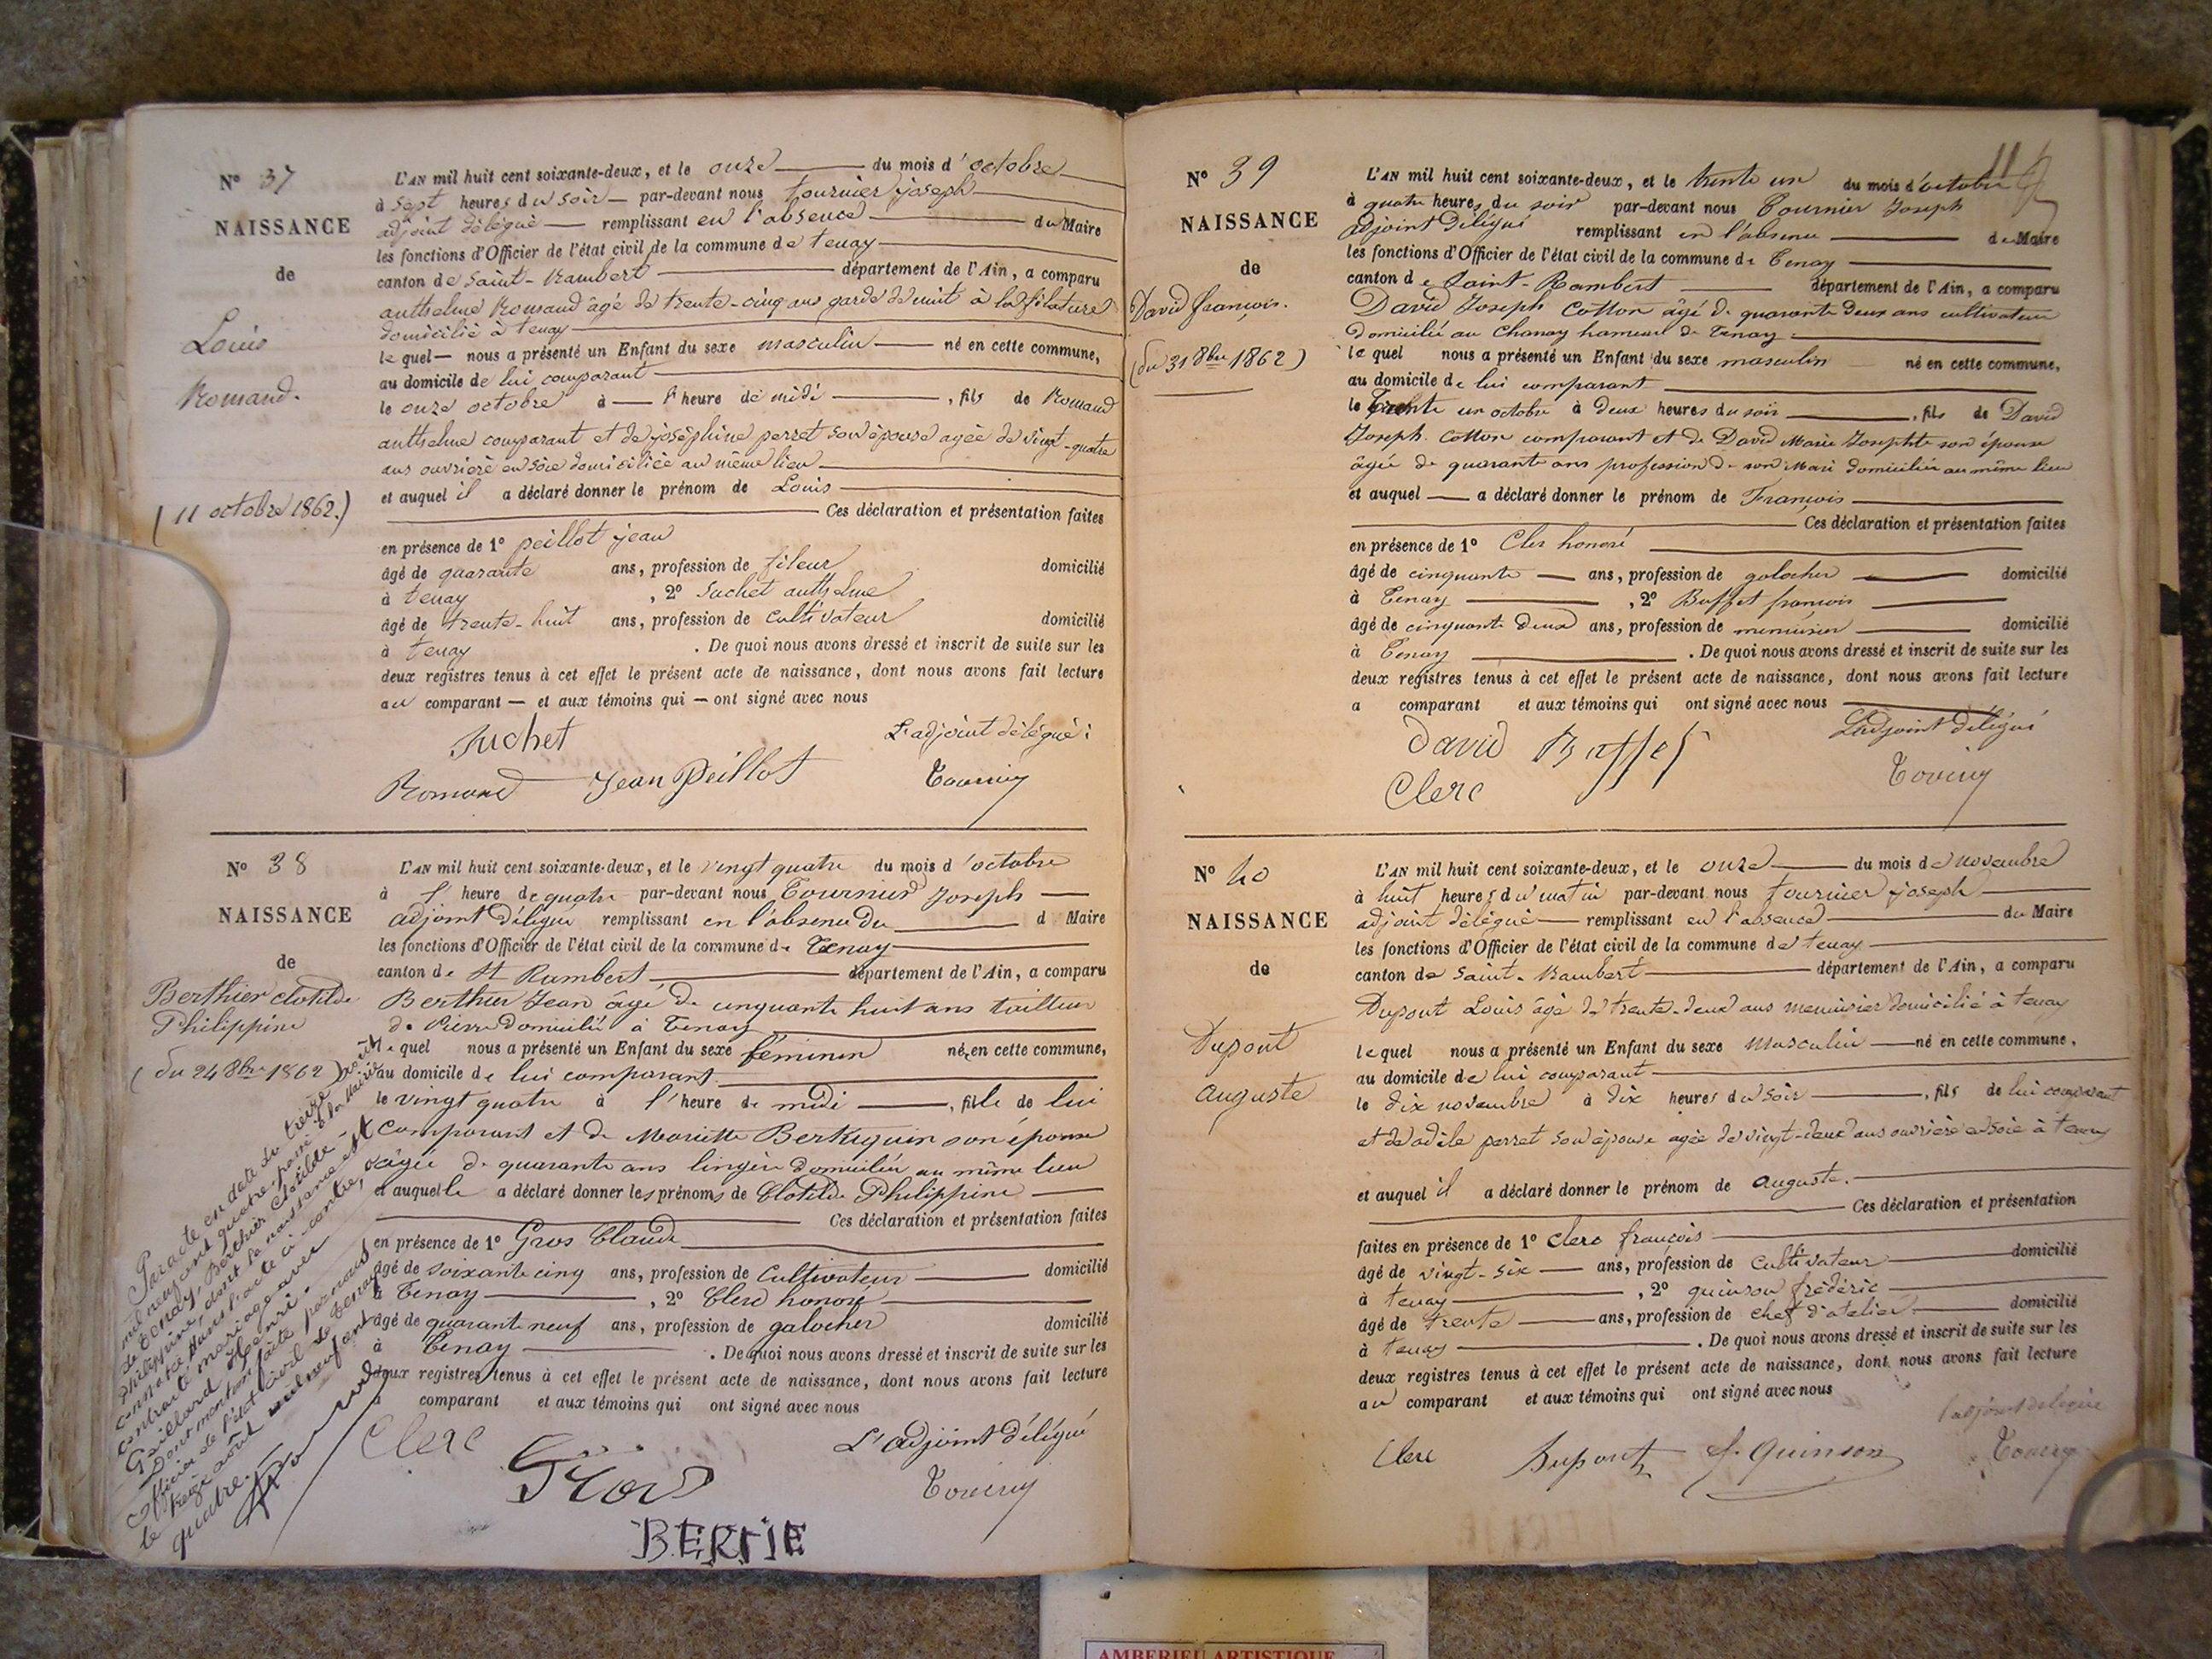 N° 37
NAISSANCE
de
Louis
Romand.
(11 octobre 1862.)
L'AN mil huit cent soixante-deux, et le onze du mois d'octobre
à sept heures du soir par-devant nous tournier joseph
adjoint délégué remplissant en l'absence du Maire
les fonctions d'Officier de l'état civil de la commune de tenay
canton de saint-Rambert département de l'Ain, a comparu
anthelme Romand âgé de trente-cinq ans garde de nuit à la filature
domicilié à tenay
lequel nous a présenté un Enfant du sexe masculin né en cette commune,
au domicile de lui comparant
le onze octobre à l'heure de midi, fils de Romand
anthelme comparant et de joséphine perret son épouse agée de vingt-quatre
ans ouvrière en soie domiciliée au même lieu
et auquel il a déclaré donner le prénom de Louis
Ces déclaration et présentation faites
en présence de 1° peillot jean
âgé de quarante ans, profession de fileur domicilié
à tenay, 2° Juchet anthelme
âgé de trente-huit ans, profession de cultivateur domicilié
à tenay. De quoi nous avons dressé et inscrit de suite sur les
deux registres tenus à cet effet le présent acte de naissance, dont nous avons fait lecture
au comparant et aux témoins qui ont signé avec nous
Juchet L'adjoint délégué:
Romand Jean Peillot
N° 38
NAISSANCE
de
Berthier clotilde
Philippine
(du 24 8bre 1862)
L'AN mil huit cent soixante-deux, et le vingt quatre du mois d'octobre
à l'heure de quatre par-devant nous Tournier Joseph
adjoint délégué remplissant en l'absence du d Maire
les fonctions d'Officier de l'état civil de la commune de Tenay
canton de St Rambert département de l'Ain, a comparu
Berthier Jean âgé de cinquante huit ans tailleur
de Pierre domicilié à Tenay
lequel nous a présenté un Enfant du sexe féminin née en cette commune,
au domicile de lui comparant
le vingt quatre à l'heure de midi, fille de lui
comparant et de Mariette son épouse
âgée de quarante ans lingère domiciliée au même lieu
et auquelle a déclaré donner les prénoms de Clotilde Philippine
Ces déclaration et présentation faites
en présence de 1° Gros Claude
âgé de soixante cinq ans, profession de Cultivateur domicilié
à Tenay, 2° Clerc honoré
âgé de quarante neuf ans, profession de galocher domicilié
à Tenay. De quoi nous avons dressé et inscrit de suite sur les
deux registres tenus à cet effet le présent acte de naissance, dont nous avons fait lecture
a comparant et aux témoins qui ont signé avec nous
Clerc Gros L'adjoint délégué
Par acte en date du treize août
mil neuf cent quatre, passé à la Mairie
de Tenay, Berthier Clotilde
Philippine, dont la naissance est
énoncée dans l'acte ci-contre, a
contracté mariage avec
Gaillard Henri.
Dont mention faite par nous
Officier de l'état civil de Tenay
le treize août mil neuf cent
quatre.
BERTIE
N° 39
NAISSANCE
de
David françois.
(du 31 8bre 1862)
L'AN mil huit cent soixante-deux, et le trente un du mois d'octobre
à quatre heures du soir par-devant nous Tournier Joseph
adjoint délégué remplissant en l'absence de Maire
les fonctions d'Officier de l'état civil de la commune de Tenay
canton de Saint-Rambert département de l'Ain, a comparu
David Joseph Cotton âgé de quarante deux ans cultivateur
domicilié au Chanay hameau de Tenay
lequel nous a présenté un Enfant du sexe masculin né en cette commune,
au domicile de lui comparant
le Trente un octobre à deux heures du soir, fils de David
Joseph Cotton comparant et de David Marie Josephte son épouse
âgée de quarante ans profession de son Mari domiciliée au même lieu
et auquel a déclaré donner le prénom de François
Ces déclaration et présentation faites
en présence de 1° Clerc honoré
âgé de cinquante ans, profession de galocher domicilié
à Tenay, 2° Buffet françois
âgé de cinquante deux ans, profession de menuisier domicilié
à Tenay. De quoi nous avons dressé et inscrit de suite sur les
deux registres tenus à cet effet le présent acte de naissance, dont nous avons fait lecture
a comparant et aux témoins qui ont signé avec nous
David Buffet L'adjoint délégué
Clerc
N° 40
NAISSANCE
de
Dupont
auguste
L'AN mil huit cent soixante-deux, et le onze du mois de novembre
à huit heures du matin par-devant nous tournier joseph
adjoint délégué remplissant en l'absence du Maire
les fonctions d'Officier de l'état civil de la commune de tenay
canton de saint-Rambert département de l'Ain, a comparu
Dupont Louis âgé de trente-deux ans menuisier domicilié à tenay
lequel nous a présenté un Enfant du sexe masculin né en cette commune,
au domicile de lui comparant
le dix novembre à dix heures du soir, fils de lui comparant
et de adèle perret son épouse agée de vingt-deux ans ouvrière en soie à tenay
et auquel il a déclaré donner le prénom de auguste.
Ces déclaration et présentation
faites en présence de 1° clerc françois
âgé de vingt-six ans, profession de cultivateur domicilié
à tenay, 2° quinson frédéric
âgé de trente ans, profession de chef d'atelier domicilié
à tenay. De quoi nous avons dressé et inscrit de suite sur les
deux registres tenus à cet effet le présent acte de naissance, dont nous avons fait lecture
au comparant et aux témoins qui ont signé avec nous
l'adjoint délégué
Clerc Dupont f. Quinson
AMBERIEU ARTISTIQUE